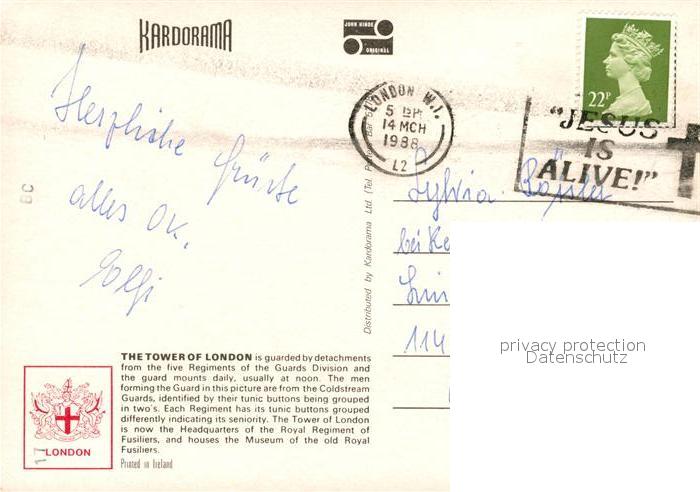 KARDORAMA
JOHN HINDE
ORIGINAL
22P
LONDON W.1.
5
14 MCH
1988
L2
"JESUS
IS
ALIVE!"
Herzliche Grüße
alles OK.
Elfi
Sylvia
bei Ke
114
BC
Distributed by Kardorama Ltd. (Tel.
privacy protection
Datenschutz
THE TOWER OF LONDON is guarded by detachments
from the five Regiments of the Guards Division and
the guard mounts daily, usually at noon. The men
forming the Guard in this picture are from the Coldstream
Guards, identified by their tunic buttons being grouped
in two's. Each Regiment has its tunic buttons grouped
differently indicating its seniority. The Tower of London
is now the Headquarters of the Royal Regiment of
Fusiliers, and houses the Museum of the old Royal
Fusiliers.
Printed in Ireland
LONDON
17